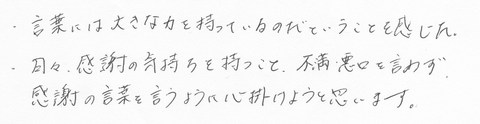 ・言葉には大きな力を持っているのだということを感じた。
・日々、感謝の気持ちを持つこと、不満・悪口を言わず、
感謝の言葉を言うように心掛けようと思います。